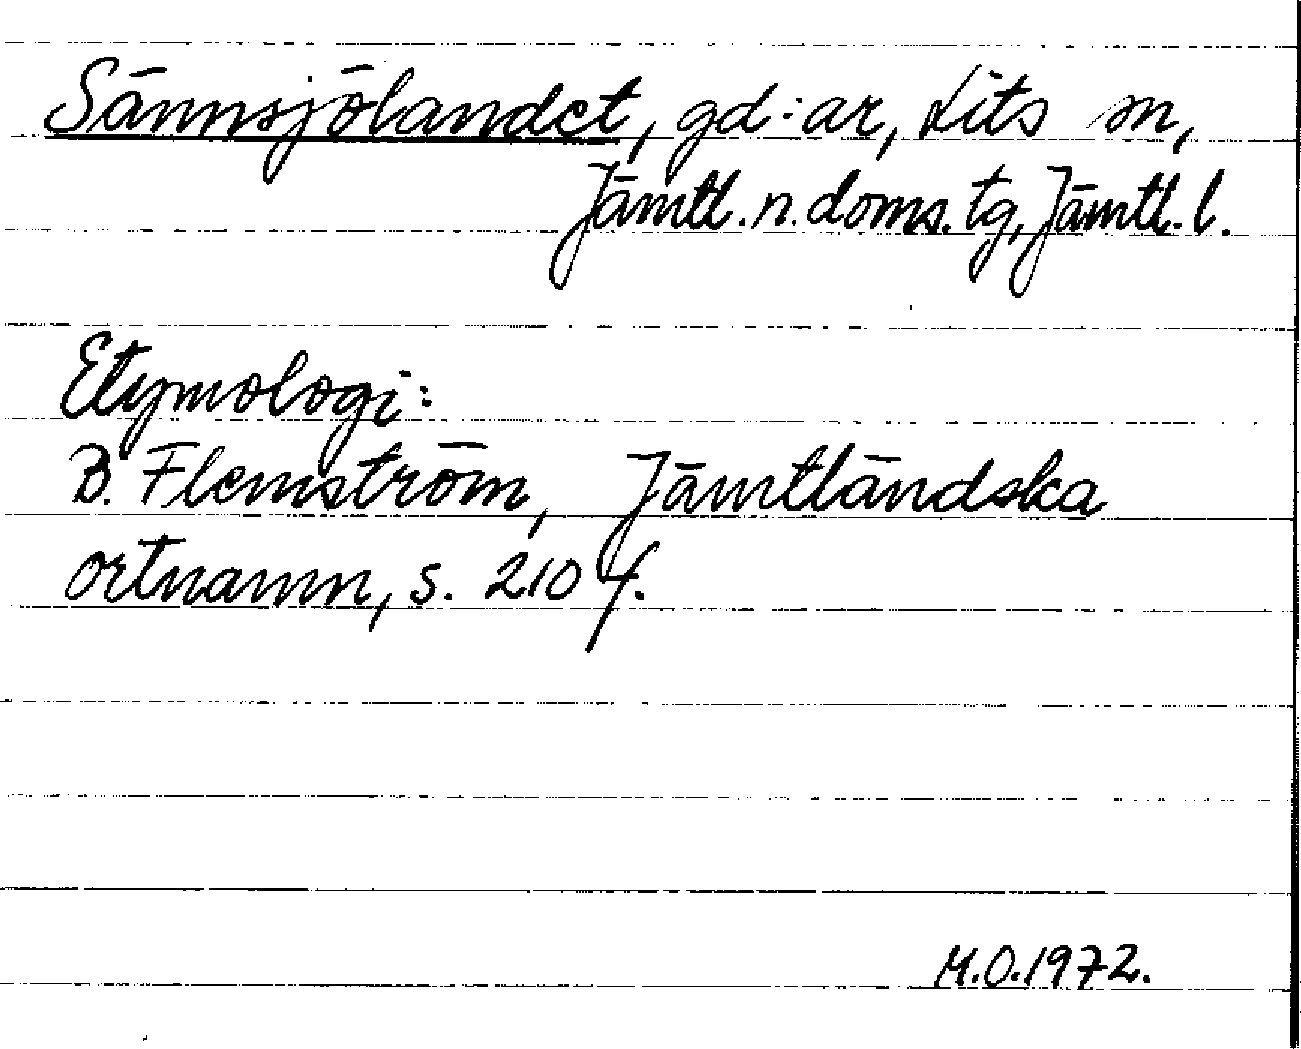 Sännsjölandet, gd:ar, Lits sn,
Jämtl. n. doms. tg, Jämtl. l.
Etymologi:
B. Flemström, Jämtländska
ortnamn, s. 210 f.
M.O.1972.